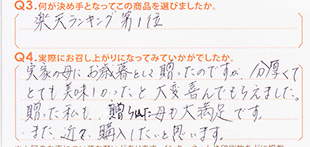 Q3.何が決め手となってこの商品を選びましたか。
楽天ランキング第1位
Q4.実際にお召し上がりになってみていかがでしたか。
実家の母にお歳暮として贈ったのですが、分厚くて
とても美味しかったと大変喜んでもらえました。
贈った私も、贈られた母も大満足です。
また、近々、購入したいと思います。